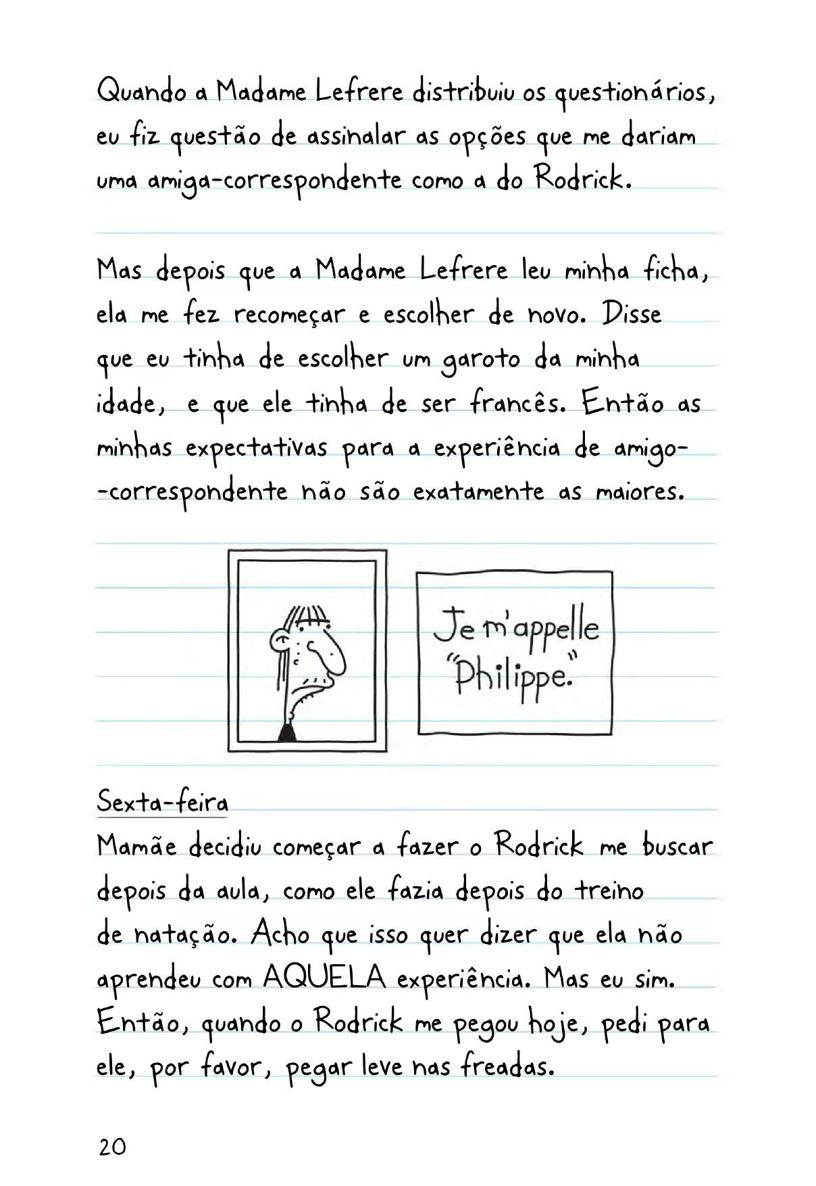 Quando a Madame Lefrere distribuiu os questionários,
eu fiz questão de assinalar as opções que me dariam
uma amiga-correspondente como a do Rodrick.
Mas depois que a Madame Lefrere leu minha ficha,
ela me fez recomeçar e escolher de novo. Disse
que eu tinha de escolher um garoto da minha
idade, e que ele tinha de ser francês. Então as
minhas expectativas para a experiência de amigo-
-correspondente não são exatamente as maiores.
Je m'appelle
"Philippe."
Sexta-feira
Mamãe decidiu começar a fazer o Rodrick me buscar
depois da aula, como ele fazia depois do treino
de natação. Acho que isso quer dizer que ela não
aprendeu com AQUELA experiência. Mas eu sim.
Então, quando o Rodrick me pegou hoje, pedi para
ele, por favor, pegar leve nas freadas.
20